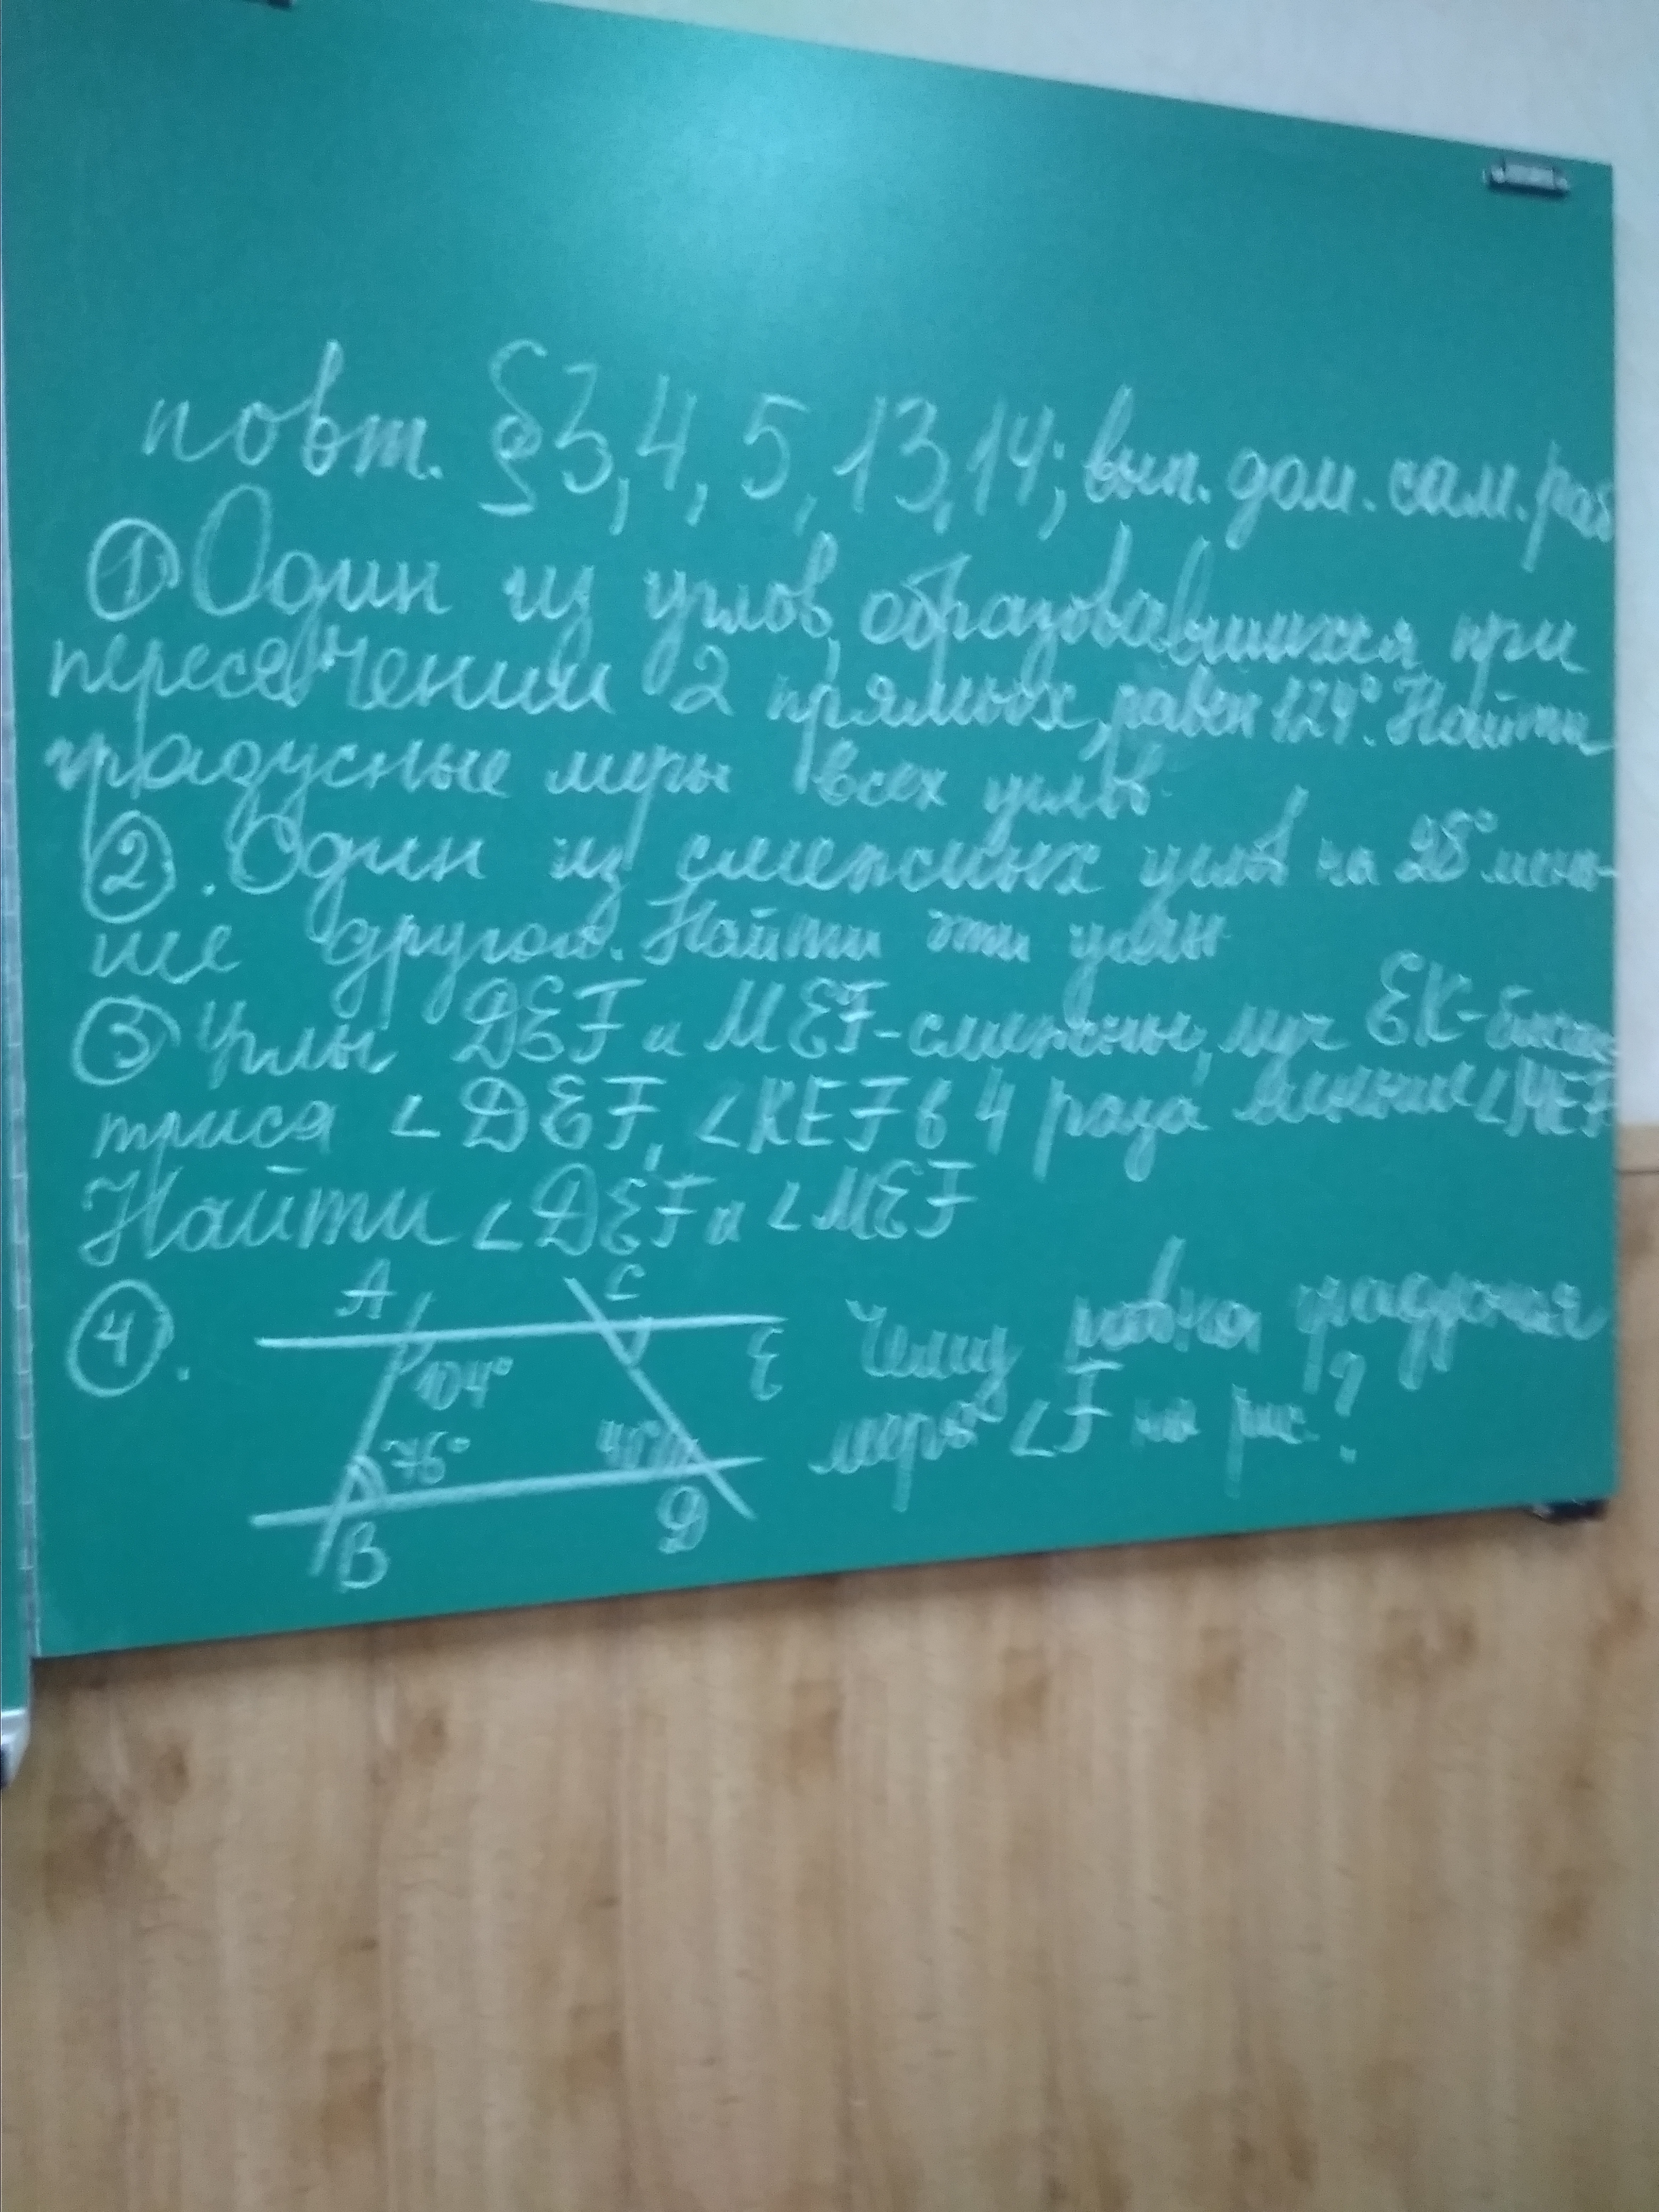 повт. §3, 4, 5, 13, 14; вып. дом. сам. раб
① Один из углов, образовавшихся при
пересечении 2 прямых, равен 124°. Найти
градусные меры всех углов
②. Один из смежных углов на 28° мень-
ше другого. Найти эти углы
③ Углы DEF и MEF-смежны, луч EK-бисек-
триса ∠DEF, ∠KEF в 4 раза меньше ∠MEF
Найти ∠DEF и ∠MEF
④.
A C
104° E
76°
B D
Чему равна градусная
мера ∠F на рис.?